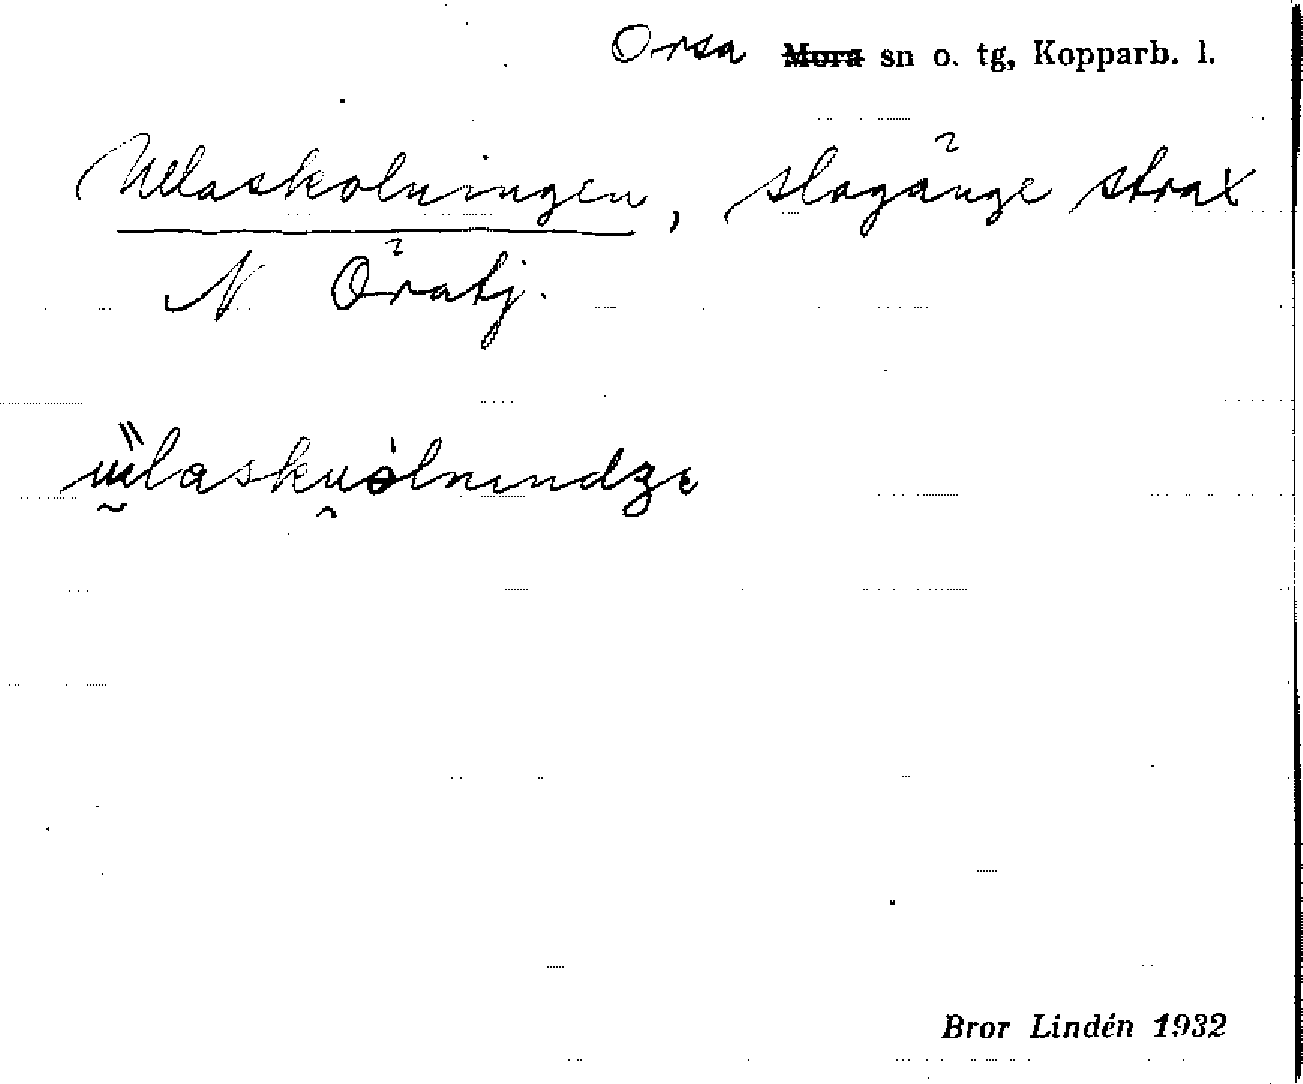 Orsa Mora sn o. tg, Kopparb. l.
Ullaskolningen, slogänge strax
N Öratj.
Bror Lindén 1932